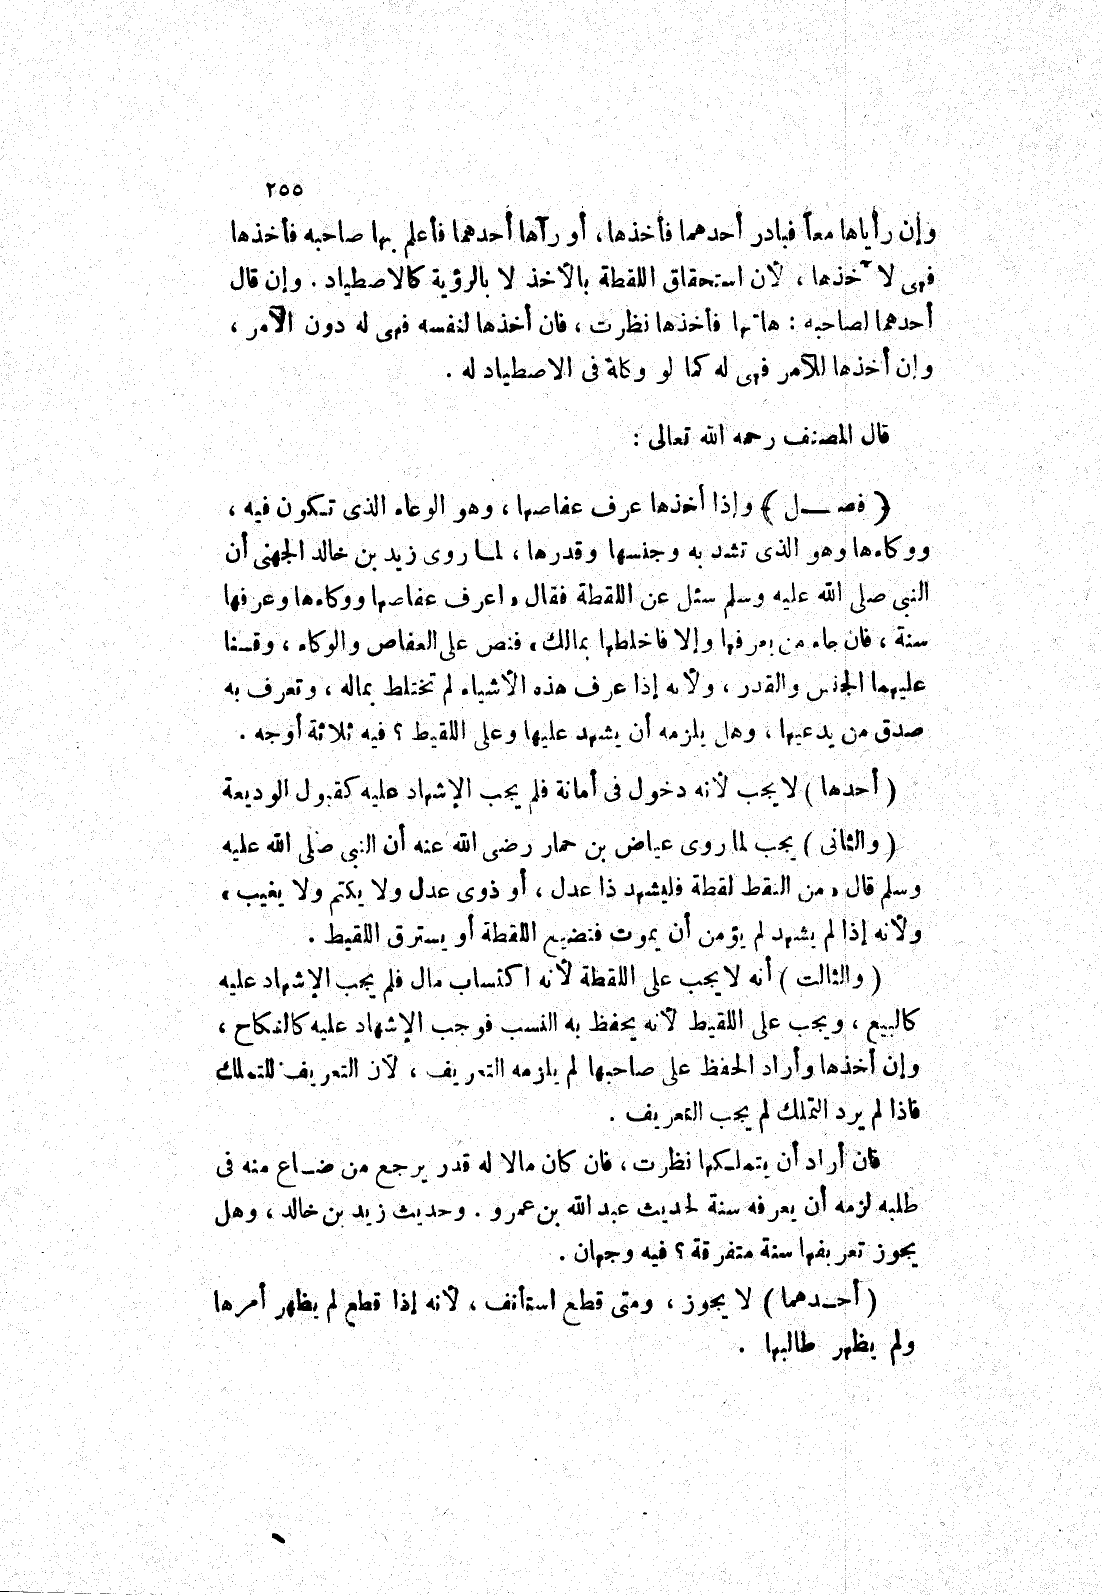 ٢٥٥
وإن رأياها معاً فبادر أحدهما فأخذها، أو رآها أحدهما فأعلم بها صاحبه فأخذها
فهى لآخذها ، لأن استحقاق اللقطة بالأخذ لا بالرؤية كالاصطياد . وإن قال
أحدهما لصاحبه : هاتها فأخذها نظرت ، فان أخذها لنفسه فهى له دون الآمر ،
وإن أخذها للآمر فهى له كما لو وكله فى الاصطياد له .
قال المصنف رحمه الله تعالى :
﴿ فصـــل ﴾ وإذا أخذها عرف عفاصها ، وهو الوعاء الذى تـكون فيه ،
ووكاءها وهو الذى تشد به وجنسها وقدرها ، لمـا روى زيد بن خالد الجهنى أن
النبى صلى الله عليه وسلم سئل عن اللقطة فقال « اعرف عفاصها ووكاءها وعرفها
سنة ، فان جاء من يعرفها وإلا فاخلطها بمالك » فنص على العفاص والوكاء ، وقسنا
عليهما الجنس والقدر ، ولأنه إذا عرف هذه الأشياء لم تختلط بماله ، وتعرف به
صدق من يدعيها ، وهل يلزمه أن يشهد عليها وعلى اللقيط ؟ فيه ثلاثة أوجه .
( أحدها ) لا يجب لأنه دخول فى أمانة فلم يجب الإشهاد عليه كقبول الوديعة
( والثانى ) يجب لما روى عياض بن حمار رضى الله عنه أن النبى صلى الله عليه
وسلم قال « من التقط لقطة فليشهد ذا عدل ، أو ذوى عدل ولا يكتم ولا يغيب »
ولأنه إذا لم يشهد لم يؤمن أن يموت فتضيع اللقطة أو يسترق اللقيط .
( والثالث ) أنه لا يجب على اللقطة لأنه اكتساب مال فلم يجب الإشهاد عليه
كالبيع ، ويجب على اللقيط لأنه يحفظ به النسب فوجب الإشهاد عليه كالنكاح ،
وإن أخذها وأراد الحفظ على صاحبها لم يلزمه التعريف ، لأن التعريف للتملك
فاذا لم يرد التملك لم يجب التعريف .
فان أراد أن يتملـكها نظرت ، فان كان مالا له قدر يرجع من ضـاع منه فى
طلبه لزمه أن يعرفه سنة لحديث عبد الله بن عمرو . وحديث زيد بن خالد ، وهل
يجوز تعريفها سنة متفرقة ؟ فيه وجهان .
( أحـدهما ) لا يجوز ، ومتى قطع استأنف ، لأنه إذا قطع لم يظهر أمرها
ولم يظهر طالبها .